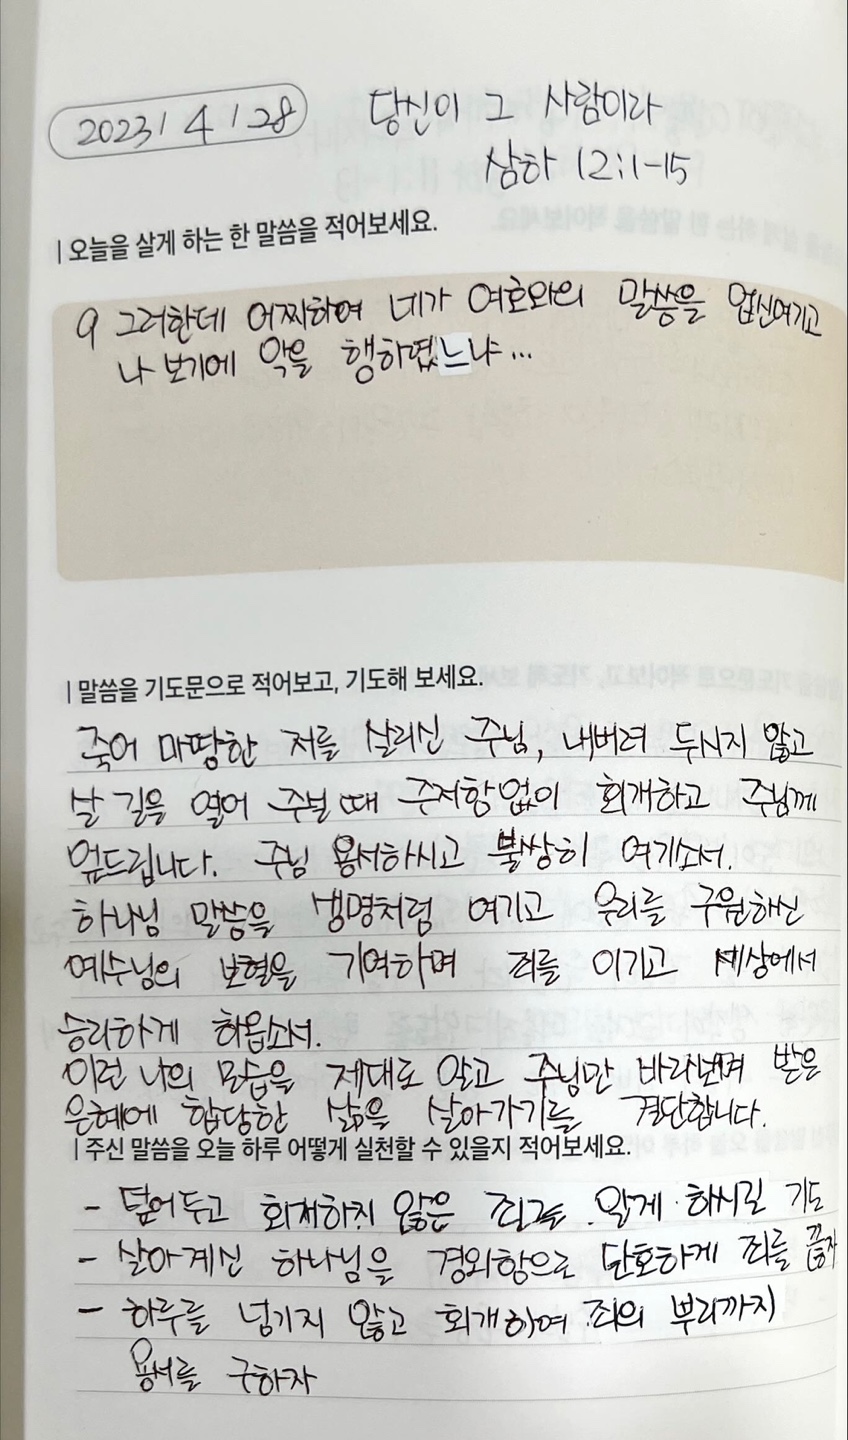 2023 / 4 / 28
당신이 그 사람이라
삼하 12:1-15
| 오늘을 살게 하는 한 말씀을 적어보세요.
9 그러한데 어찌하여 네가 여호와의 말씀을 업신여기고
나 보기에 악을 행하였느냐...
| 말씀을 기도문으로 적어보고, 기도해 보세요.
죽어 마땅한 저를 살리신 주님, 내버려 두시지 않고
살 길을 열어 주실 때 주저함없이 회개하고 주님께
엎드립니다. 주님 용서하시고 불쌍히 여기소서.
하나님 말씀을 생명처럼 여기고 우리를 구원하신
예수님의 보혈을 기억하며 죄를 이기고 세상에서
승리하게 하옵소서.
이런 나의 모습을 제대로 알고 주님만 바라보며 받은
은혜에 합당한 삶을 살아가기를 결단합니다.
| 주신 말씀을 오늘 하루 어떻게 실천할 수 있을지 적어보세요.
- 덮어두고 회개하지 않은 죄를 알게 하시길 기도
- 살아계신 하나님을 경외함으로 단호하게 죄를 끊자
- 하루를 넘기지 않고 회개하여 죄의 뿌리까지
용서를 구하자